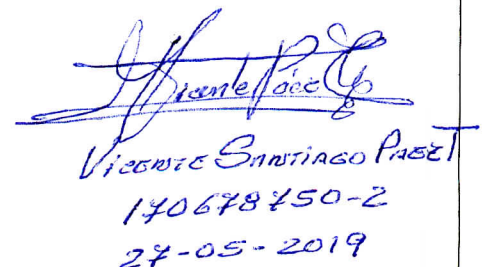 Vicente Páez
VICENTE SANTIAGO PAEZ T
170678750-2
27-05-2019